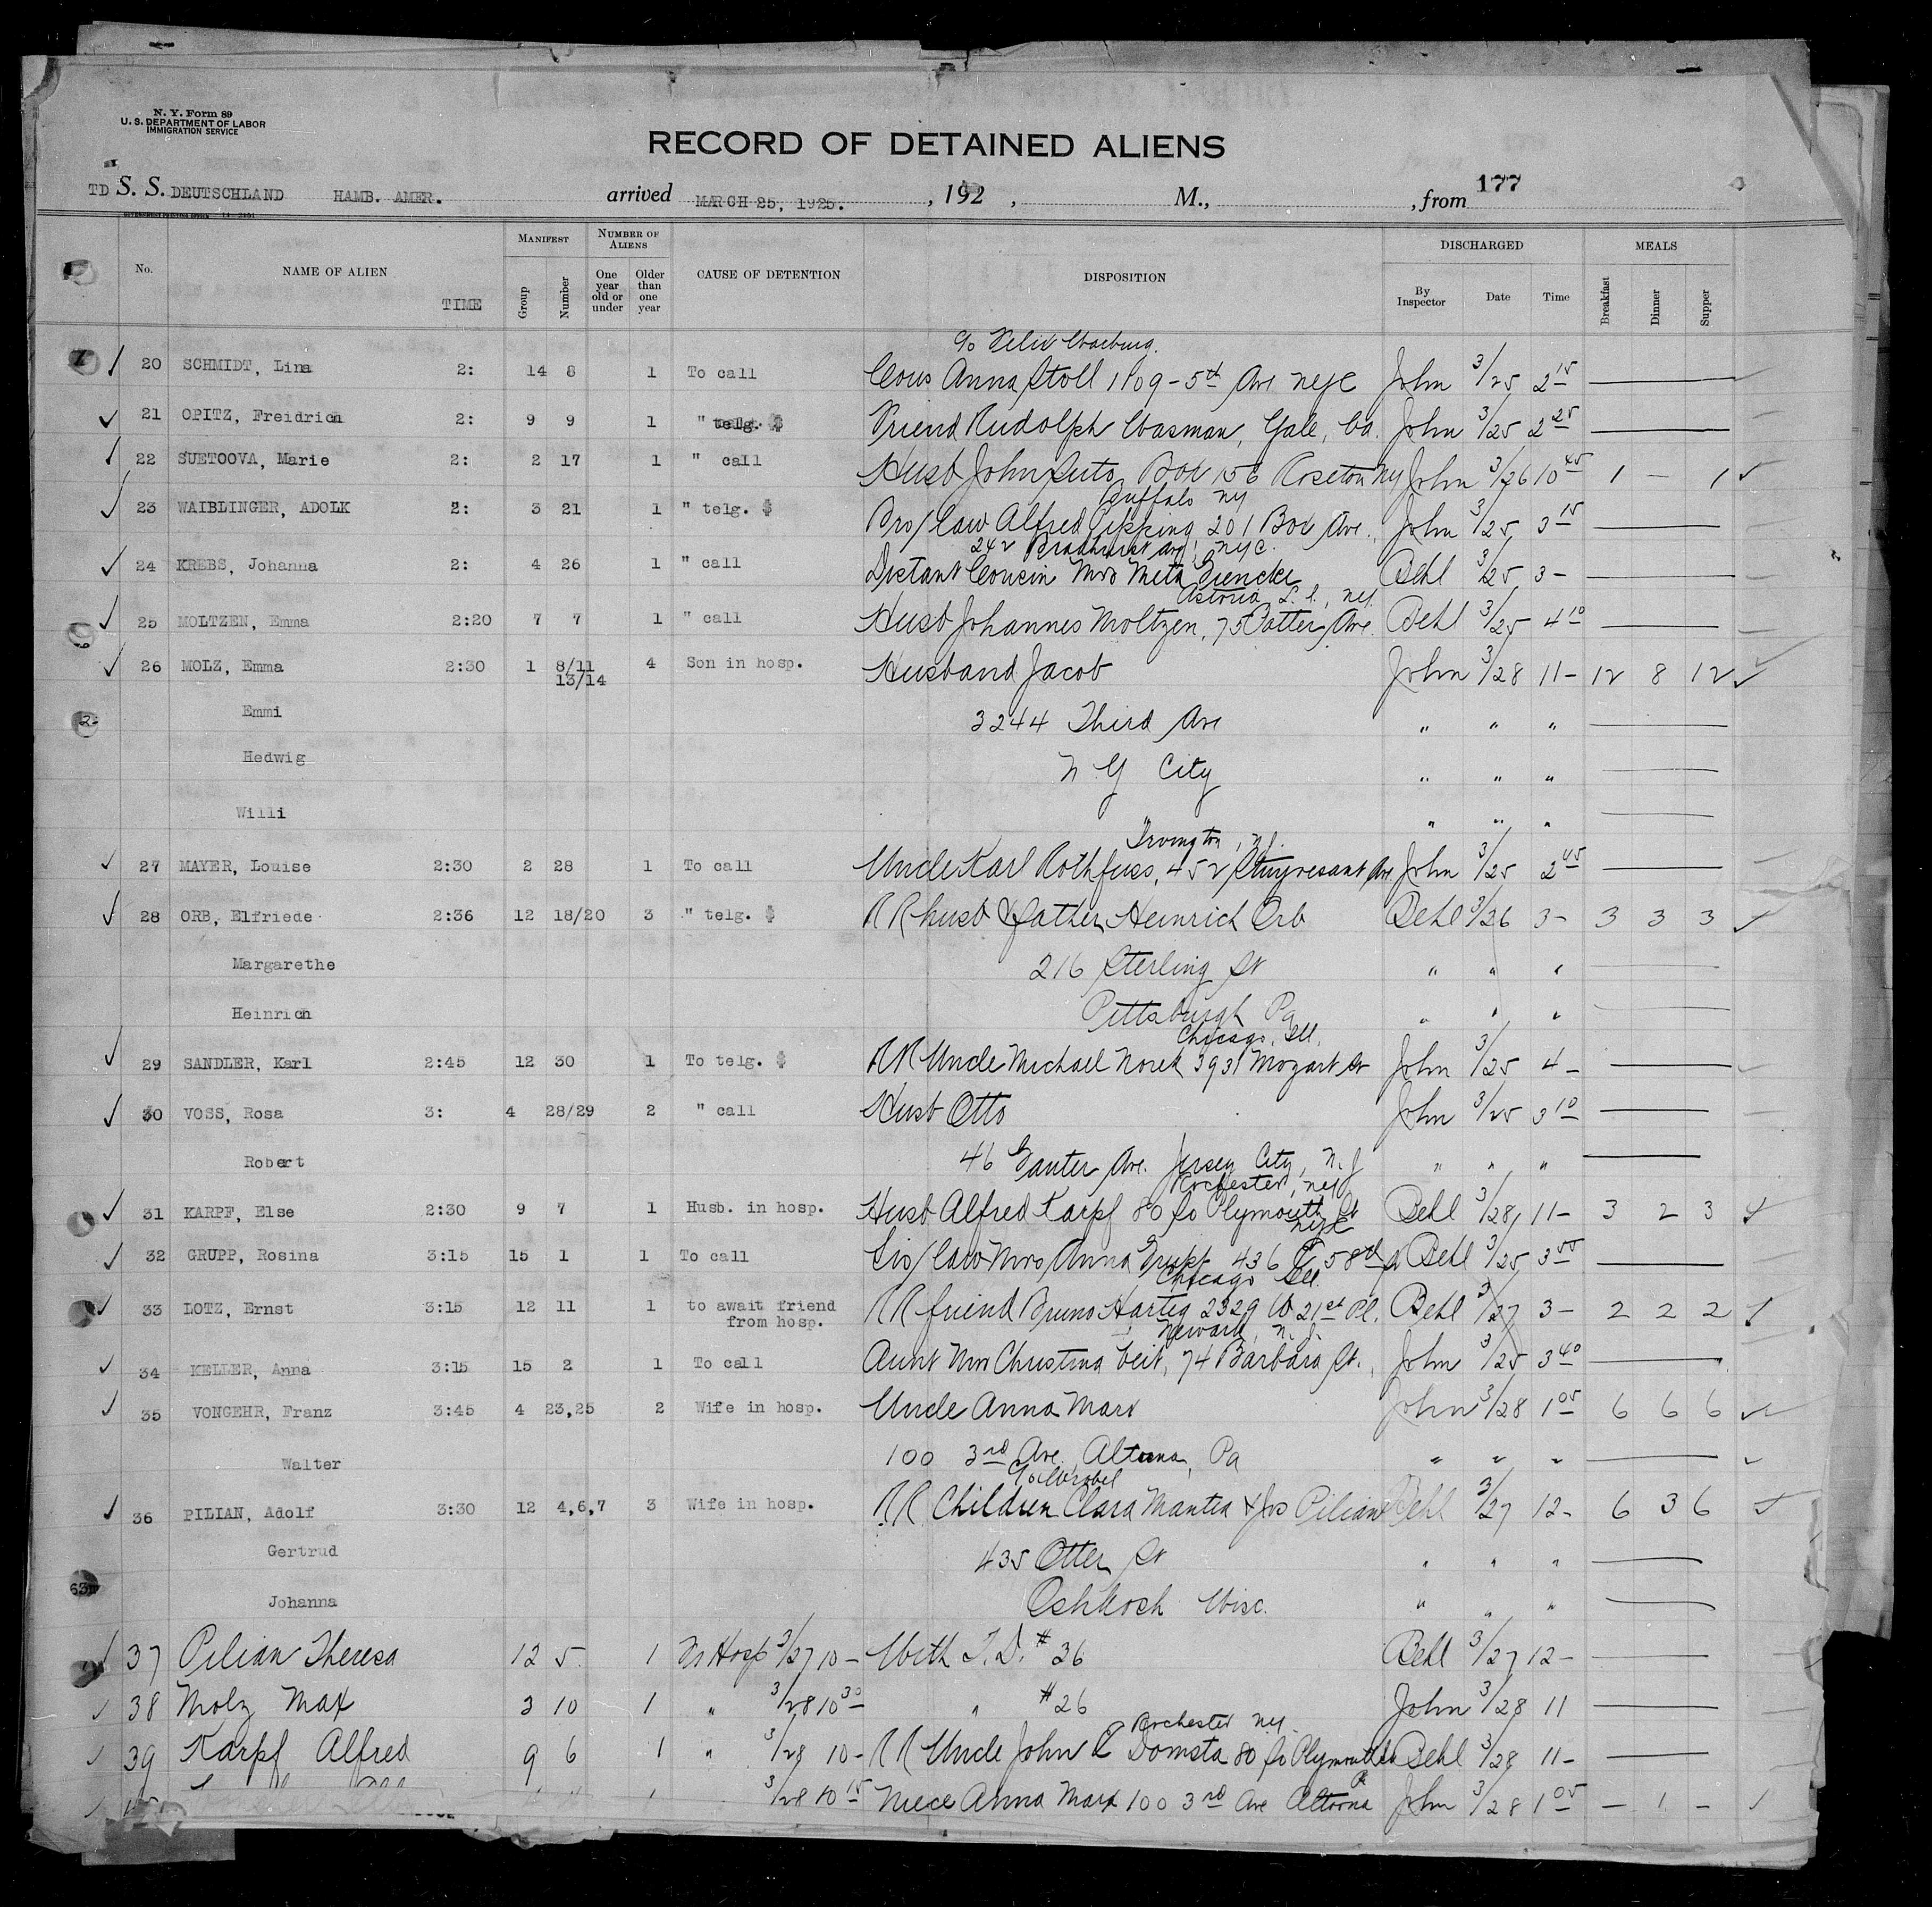 N. Y. Form 89
U. S. DEPARTMENT OF LABOR
IMMIGRATION SERVICE
RECORD OF DETAINED ALIENS
TD S. S. DEUTSCHLAND HAMB. AMER. arrived MARCH 25, 1925. , 192 , M., , from 177
No. NAME OF ALIEN TIME MANIFEST Group Number NUMBER OF ALIENS One year old or under Older than one year CAUSE OF DETENTION DISPOSITION DISCHARGED By Inspector Date Time MEALS Breakfast Dinner Supper
c/o Felix Warburg.
20 SCHMIDT, Lina 2: 14 8 1 To call Cous Anna Stoll 1109 - 5th Ave NYC John 3/25 2 15
21 OPITZ, Freidrich 2: 9 9 1 " telg. $ Friend Rudolph Wasman, Gale, Ca. John 3/25 2 25
22 SUETOOVA, Marie 2: 2 17 1 " call Husb John Suto Box 156 Roseton NY John 3/26 10 45 1 — 1
Buffalo NY
23 WAIBLINGER, ADOLK 2: 3 21 1 " telg. $ Bro/law Alfred Pipping 201 Box Ave. John 3/25 3 15
242 Bradhurst Ave, NYC.
24 KREBS, Johanna 2: 4 26 1 " call Distant Cousin Mrs Meta Giencke Behl 3/25 3 -
Astoria L. I., NY.
25 MOLTZEN, Emma 2:20 7 7 1 " call Husb Johannes Moltzen, 75 Potter Ave. Behl 3/25 4 10
26 MOLZ, Emma 2:30 1 8/11 4 Son in hosp. Husband Jacob John 3/28 11 - 12 8 12
13/14
Emmi 3244 Third Ave " " "
Hedwig N. Y City " " "
Willi " " "
Irvington, N.J.
27 MAYER, Louise 2:30 2 28 1 To call Uncle Karl Rothfuss, 452 Stuyvesant Ave. John 3/25 2 45
28 ORB, Elfriede 2:36 12 18/20 3 " telg. $ RR husb & father Heinrich Orb Behl 3/26 3 - 3 3 3
Margarethe 216 Sterling St " " "
Heinrich Pittsburgh Pa " " "
Chicago, Ill.
29 SANDLER, Karl 2:45 12 30 1 To telg. $ RR Uncle Michael Norek 3931 Mozart St John 3/25 4 -
30 VOSS, Rosa 3: 4 28/29 2 " call Husb Otto John 3/25 3 10
Robert 46 Ganter Ave. Jersey City, N.J " " "
Rochester, NY
31 KARPF, Else 2:30 9 7 1 Husb. in hosp. Husb Alfred Karpf 80 So Plymouth St Behl 3/28 11 - 3 2 3
NYC
32 GRUPP, Rosina 3:15 15 1 1 To call Sis/law Mrs Anna Grupp 436 E 58th St Behl 3/25 3 55
Chicago Ill.
33 LOTZ, Ernst 3:15 12 11 1 to await friend RR friend Bruno Hartig 2329 W 21st Pl. Behl 3/27 3 - 2 2 2
from hosp.
Newark, N.J.
34 KELLER, Anna 3:15 15 2 1 To call Aunt Mrs Christina Veit, 74 Barbara St. John 3/25 3 40
35 VONGEHR, Franz 3:45 4 23,25 2 Wife in hosp. Uncle Anna Marx John 3/28 1 05 6 6 6
Walter 100 3rd Ave. Altoona, Pa " " "
36 PILIAN, Adolf 3:30 12 4,6,7 3 Wife in hosp. RR Children Clara Mantea & Jos Pilian Behl 3/27 12 - 6 3 6
Gertrud 435 Otter St " " "
Johanna Oshkosh Wisc. " " "
37 Pilian Theresa 12 5 1 In Hosp 3/27 10 - With T.D. # 36 Behl 3/27 12 -
38 Molz Max 3 10 1 " 3/28 10 30 " # 26 John 3/28 11
Rochester NY.
39 Karpf Alfred 9 6 1 " 3/28 10 - RR Uncle John C Domsta 80 So Plymouth Behl 3/28 11 -
3/28 10 15 Niece Anna Marx 100 3rd Ave Altoona Pa John 3/28 1 05 — 1 —